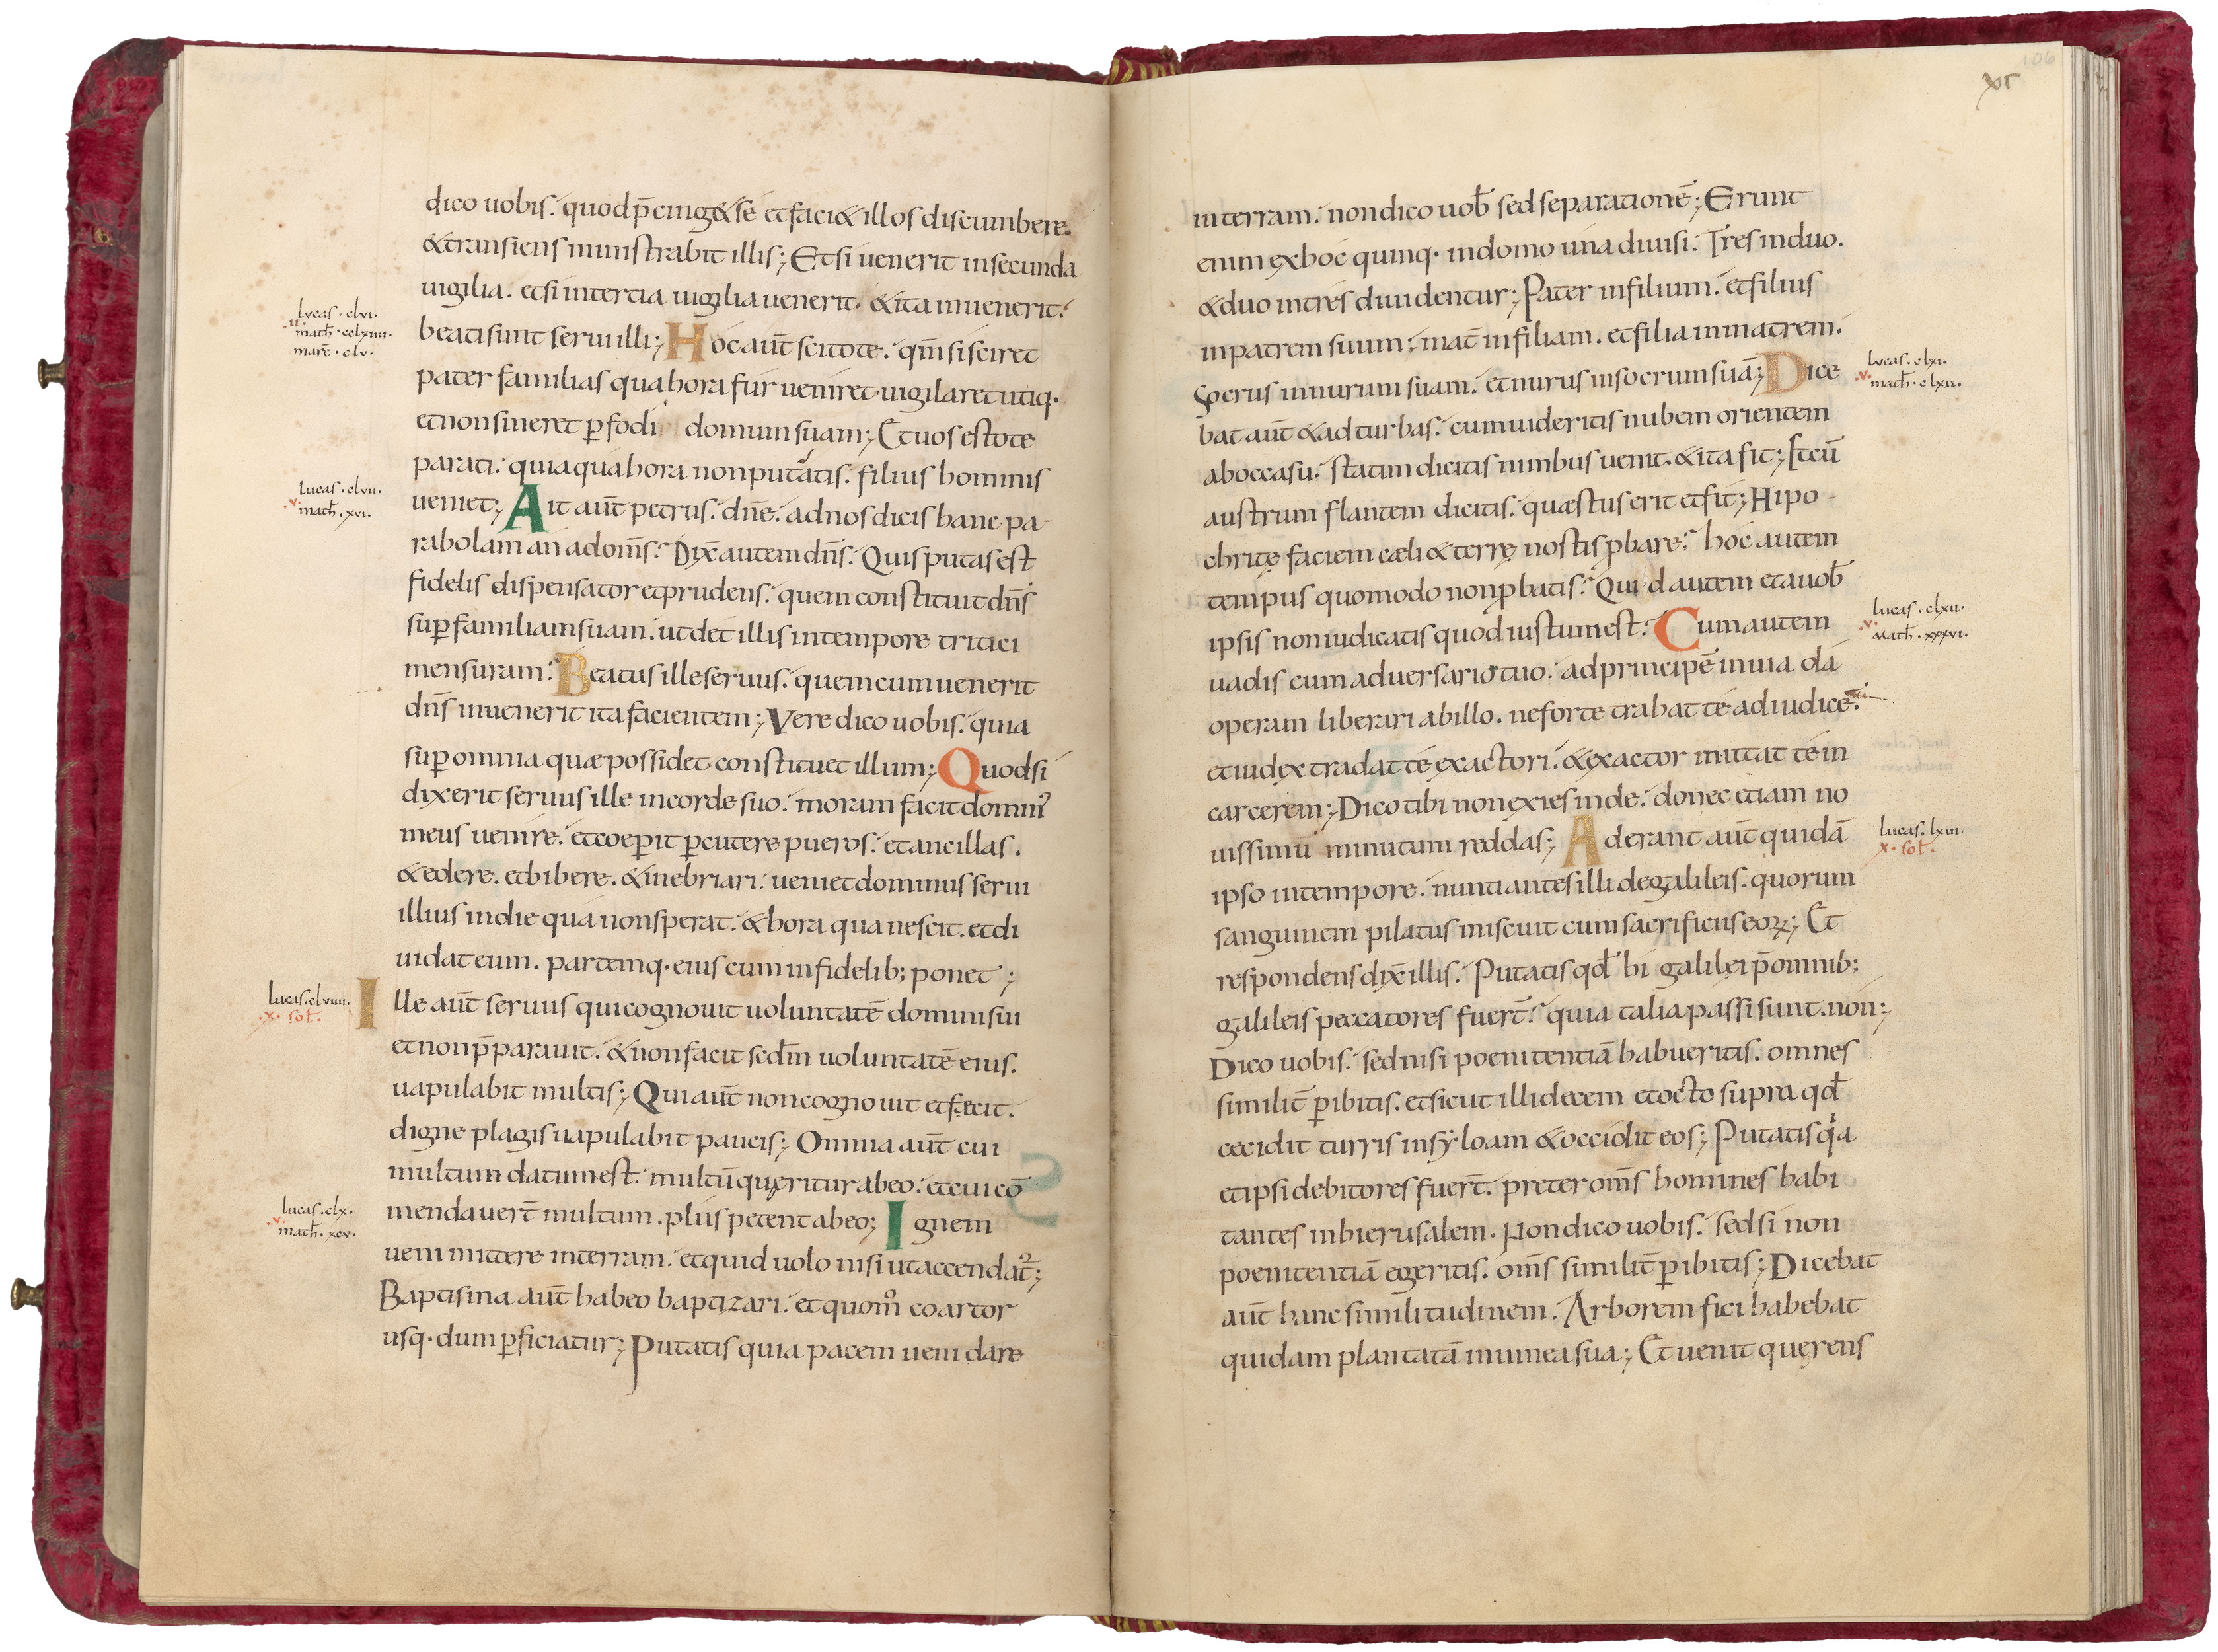 dico uobis. quod p̄cing& se et faci& illos discumbere.
& transiens ministrabit illis; Et si uenerit in secunda
uigilia. et si in tertia uigilia uenerit. & ita inuenerit.
lucas. clvi.
.ii. math̄. cclxiiii.
marc̄. clv.
beati sunt serui illi; Hoc aut̄ scitote. qm̄ si sciret
pater familias qua hora fur ueniret uigilaret utiq.
et non sineret ꝑfodi domum suam; Et uos estote
parati. quia qua hora non putatis. filius hominis
lucas. clvii.
.v. math̄. xvi.
ueniet; Ait aut̄ petrus. dn̄e. ad nos dicis hanc pa-
rabolam an ad om̄s. Dix̄ autem dn̄s. Quis putas est
fidelis dispensator et prudens. quem constituit dn̄s
suꝑ familiam suam. ut det illis in tempore tritici
mensuram. Beatus ille seruus. quem cum uenerit
dn̄s inuenerit ita facientem; Vere dico uobis. quia
suꝑ omnia quæ possidet constituet illum; Quod si
dixerit seruus ille in corde suo. moram facit domin᾿
meus uenire. et coeperit ꝑcutere pueros. et ancillas.
& edere. et bibere. & inebriari. ueniet dominus serui
illius in die qua non sperat. & hora qua nescit. et di
uidat eum. partemq. eius cum infidelib; ponet;
lucas. clviiii.
.x. sol̄.
Ille aut̄ seruus qui cognouit uoluntatē domini sui
et non p̄parauit. & non facit secdm̄ uoluntatē eius.
uapulabit multis; Qui aut̄ non cognouit et fecit.
digne plagis uapulabit paucis; Omnia aut̄ cui
multum datum est. multū queritur ab eo. et cui cō
lucas. clx.
.v. math̄. xcv.
mendauer̄t multum. plus petent ab eo; Ignem
ueni mittere in terram. et quid uolo nisi ut accendat᾿;
Baptisma aut̄ habeo baptizari. et quom̊ coartor
usq. dum ꝑficiatur; Putatis quia pacem ueni dare
106
xi
in terram. non dico uob̄ sed separationē; Erunt
enim ex hoc quinq. in domo una diuisi. Tres in duo.
& duo in tres diuidentur; Pater in filium. et filius
in patrem suum. mat̄ in filiam. et filia in matrem.
Socrus in nurum suam. et nurus in socrum suā; Dice
lucas. clxi.
.v. math̄. clxii.
bat aut̄ & ad turbas. cum uideritis nubem orientem
ab occasu. statim dicitis nimbus uenit. & ita fit; Et cū
austrum flantem dicitis. quæ stus erit et fit; Hipo-
chritę faciem cæli & terrę nostis ꝓbare. hoc autem
tempus quomodo non ꝓbatis. Quid autem et a uob̄
ipsis non iudicatis quod iustum est. Cum autem
lucas. clxii.
.v. math̄. xxxvi.
uadis cum aduersario tuo. ad principē in uia da
operam liberari ab illo. ne forte trahat te ad iudicē.
et iudex tradat te exactori. & exactor mittat te in
carcerem; Dico tibi non exies inde. donec etiam no
uissimū minutum reddas; Aderant aut̄ quidā
lucas. lxiii.
x. sol̄.
ipso in tempore. nuntiantes illi de galileis. quorum
sanguinem pilatus miscuit cum sacrificiis eoꝝ; Et
respondens dix̄ illis. Putatis qđ hi galilęi p̄ omnib:
galileis peccatores fuer̄t. quia talia passi sunt. non;
Dico uobis. sed nisi poenitentiā habueritis. omnes
similit̄ ꝑibitis. et sicut illi decem et octo supra qđ
cecidit turris in syloam & occidit eos; Putatis qa
et ipsi debitores fuer̄t. preter om̄s homines habi
tantes in hierusalem. Non dico uobis. sed si non
poenitentiā egeritis. om̄s similit̄ ꝑibitis; Dicebat
aut̄ hanc similitudinem. Arborem fici habebat
quidam plantatā in uinea sua; Et uenit querens